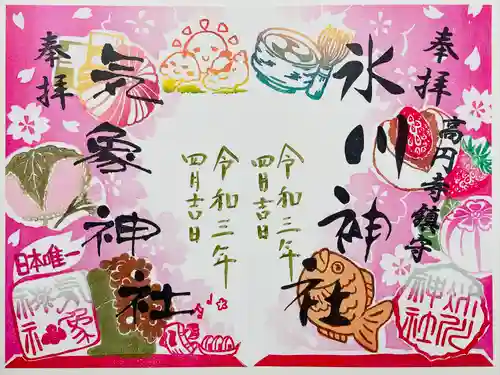 奉拝
高円寺鎮守
氷川神社
令和三年
四月吉日
奉拝
気象神社
令和三年
四月吉日
日本唯一
気象神社
氷川神社